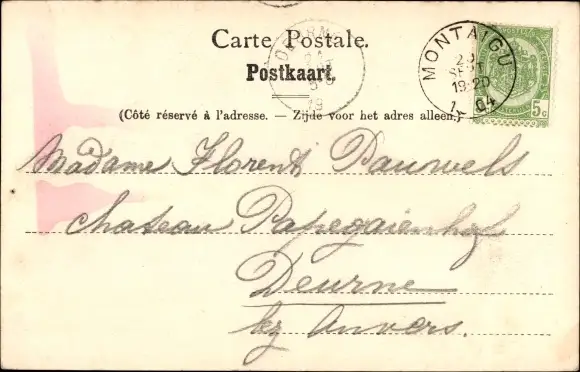 Carte Postale.
Postkaart.
(Côté réservé à l'adresse. — Zijde voor het adres alleen.)
MONTAIGU
SEPT
19-20
04
5c
Madame Florent Pauwels
chateau Papegaienhof
Deurne
lez Anvers.